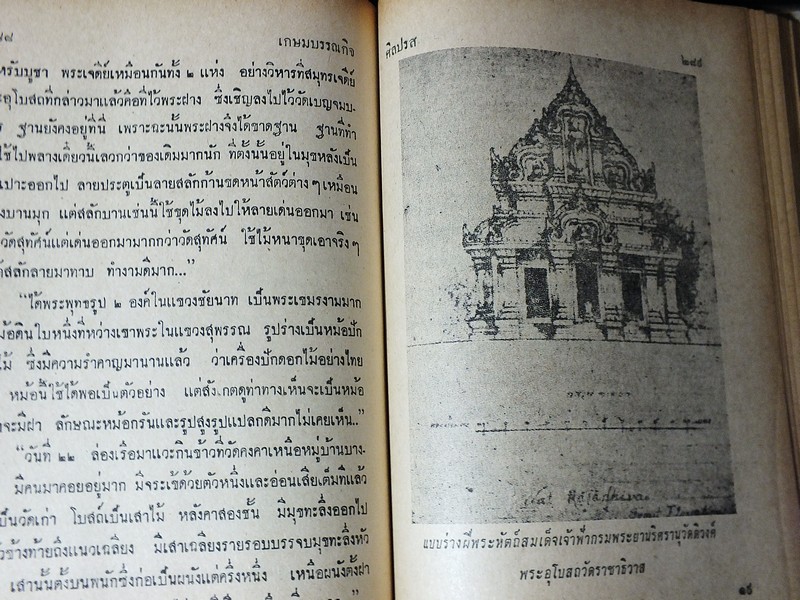 เกษมบรรณกิจ
หรับบูชา พระเจดีย์เหมือนกันทั้ง ๒ แห่ง อย่างวิหารที่สมุทรเจดีย์
ะอุโบสถที่กล่าวมาแล้วคือที่ไว้พระฝาง ซึ่งเชิญลงไปไว้วัดเบญจมบ-
ฐานยังคงอยู่ที่นี่ เพราะฉะนั้นพระฝางจึงได้ขาดฐาน ฐานที่ทำ
ใช้ไปพลางเดี๋ยวนี้เลวกว่าของเดิมมากนัก ที่ตั้งนั้นอยู่ในมุขหลังเป็น
เปาะออกไป ลายประตูเป็นลายสลักก้านขดหน้าสัตว์ต่าง ๆ เหมือน
งบานมุก แต่สลักบานเช่นนี้ใช้ขุดไม้ลงไปให้ลายเด่นออกมา เช่น
วัดสุทัศน์แต่เด่นออกมามากกว่าวัดสุทัศน์ ใช้ไม้หนาขุดเอาจริง ๆ
สลักลายมาทาบ ทำงามดีมาก..."
"ได้พระพุทธรูป ๒ องค์ในแขวงชัยนาท เป็นพระเขมรงามมาก
ม้อดินใบหนึ่งที่หว่างเขาพระในแขวงสุพรรณ รูปร่างเป็นหม้อปัก
ไม้ ซึ่งมีความรำคาญมานานแล้ว ว่าเครื่องปักดอกไม้อย่างไทย
หม้อนี้ใช้ได้พอเป็นตัวอย่าง แต่สังเกตดูท่าทางเห็นจะเป็นหม้อ
จะมีฝา ลักษณะหม้อกรันและรูปสูงรูปแปลกดีมากไม่เคยเห็น.."
"วันที่ ๒๒ ล่องเรือมาแวะกินข้าวที่วัดคงคาเหนือหมู่บ้านบาง-
มีคนมาคอยอยู่มาก มีจระเข้ด้วยตัวหนึ่งและอ่อนเสียเต็มทีแล้ว
ป็นวัดเก่า โบสถ์เป็นเสาไม้ หลังคาสองชั้น มีมุขทะลึ่งออกไป
ข้างท้ายถึงแนวเฉลียง มีเสาเฉลียงรายรอบบรรจบมุขทะลึ่งหัว
เสานั้นตั้งบนพนักซึ่งก่อเป็นผนังแต่ครึ่งหนึ่ง เหนือผนังตั้งฝา
ศิลปรส
๒๘๙
Wat Rajadhivas
แบบร่างฝีพระหัตถ์สมเด็จเจ้าฟ้ากรมพระยานริศรานุวัดติวงศ์
พระอุโบสถวัดราชาธิวาส
๑๙